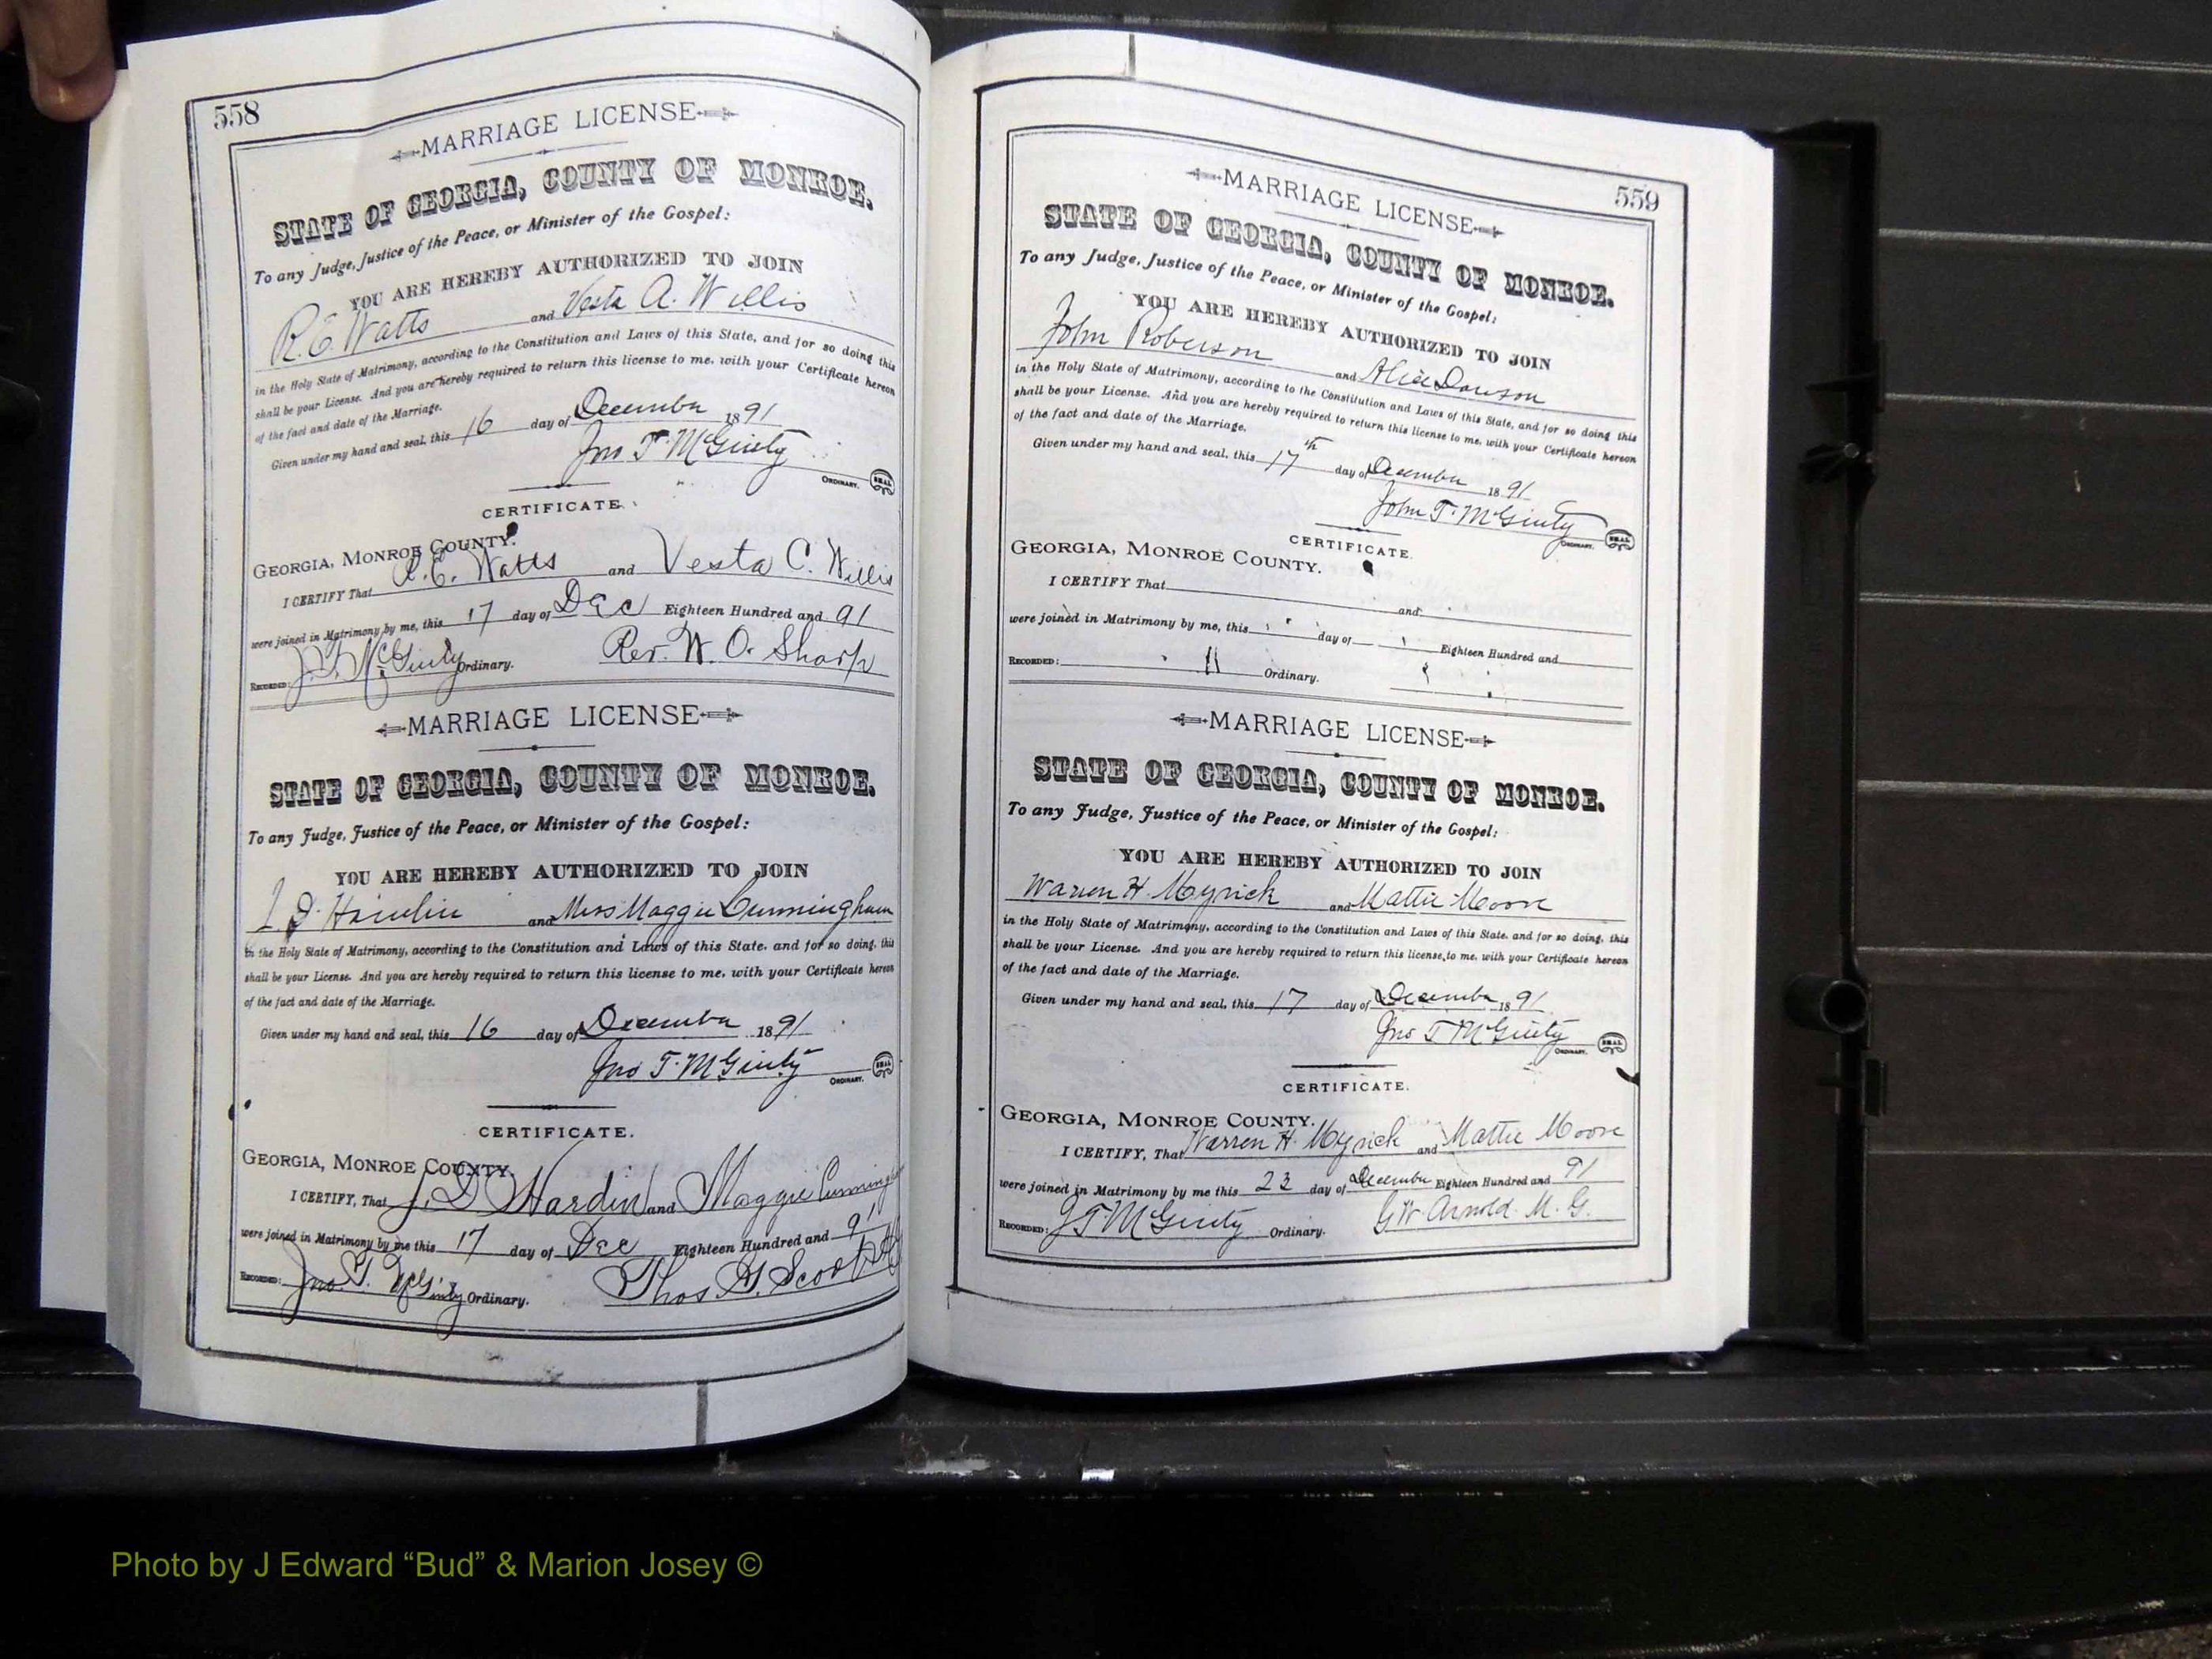 558
MARRIAGE LICENSE
STATE OF GEORGIA, COUNTY OF MONROE.
To any Judge, Justice of the Peace, or Minister of the Gospel:
YOU ARE HEREBY AUTHORIZED TO JOIN
R. E. Watts and Vesta A. Willis
in the Holy State of Matrimony, according to the Constitution and Laws of this State, and for so doing this
shall be your License. And you are hereby required to return this license to me, with your Certificate hereon
of the fact and date of the Marriage.
Given under my hand and seal, this 16 day of December 1891
Jno T. McGinty
ORDINARY. SEAL
CERTIFICATE.
GEORGIA, MONROE COUNTY.
I CERTIFY That R. E. Watts and Vesta C. Willis
were joined in Matrimony by me, this 17 day of Dec Eighteen Hundred and 91
RECORDED: J. T. McGinty Ordinary. Rev. W. O. Sharp
MARRIAGE LICENSE
STATE OF GEORGIA, COUNTY OF MONROE.
To any Judge, Justice of the Peace, or Minister of the Gospel:
YOU ARE HEREBY AUTHORIZED TO JOIN
J. D. and Miss Maggie Cunningham
in the Holy State of Matrimony, according to the Constitution and Laws of this State. and for so doing, this
shall be your License. And you are hereby required to return this license to me, with your Certificate hereon
of the fact and date of the Marriage.
Given under my hand and seal, this 16 day of December 1891
Jno T. McGinty
ORDINARY. SEAL
CERTIFICATE.
GEORGIA, MONROE COUNTY.
I CERTIFY, That J. D. Hardin and Maggie Cunningh
were joined in Matrimony by me this 17 day of Dec Eighteen Hundred and 91
RECORDED: Jno. T. McGinty Ordinary. Thos G. Scott
559
MARRIAGE LICENSE
STATE OF GEORGIA, COUNTY OF MONROE.
To any Judge, Justice of the Peace, or Minister of the Gospel:
YOU ARE HEREBY AUTHORIZED TO JOIN
John Roberson and Alice Dawson
in the Holy State of Matrimony, according to the Constitution and Laws of this State, and for so doing this
shall be your License. And you are hereby required to return this license to me, with your Certificate hereon
of the fact and date of the Marriage.
Given under my hand and seal, this 17th day of December 1891
John T. McGinty
ORDINARY. SEAL
CERTIFICATE.
GEORGIA, MONROE COUNTY.
I CERTIFY That and
were joined in Matrimony by me, this day of Eighteen Hundred and
RECORDED: Ordinary.
MARRIAGE LICENSE
STATE OF GEORGIA, COUNTY OF MONROE.
To any Judge, Justice of the Peace, or Minister of the Gospel:
YOU ARE HEREBY AUTHORIZED TO JOIN
Warren H. Myrick and Mattie Moore
in the Holy State of Matrimony, according to the Constitution and Laws of this State. and for so doing, this
shall be your License. And you are hereby required to return this license, to me, with your Certificate hereon
of the fact and date of the Marriage.
Given under my hand and seal, this 17 day of December 1891
Jno T McGinty
ORDINARY. SEAL
CERTIFICATE.
GEORGIA, MONROE COUNTY.
I CERTIFY, That Warren H. Myrick and Mattie Moore
were joined in Matrimony by me this 23 day of December Eighteen Hundred and 91
RECORDED: J T McGinty Ordinary. G W Arnold. M. G.
Photo by J Edward “Bud” & Marion Josey ©